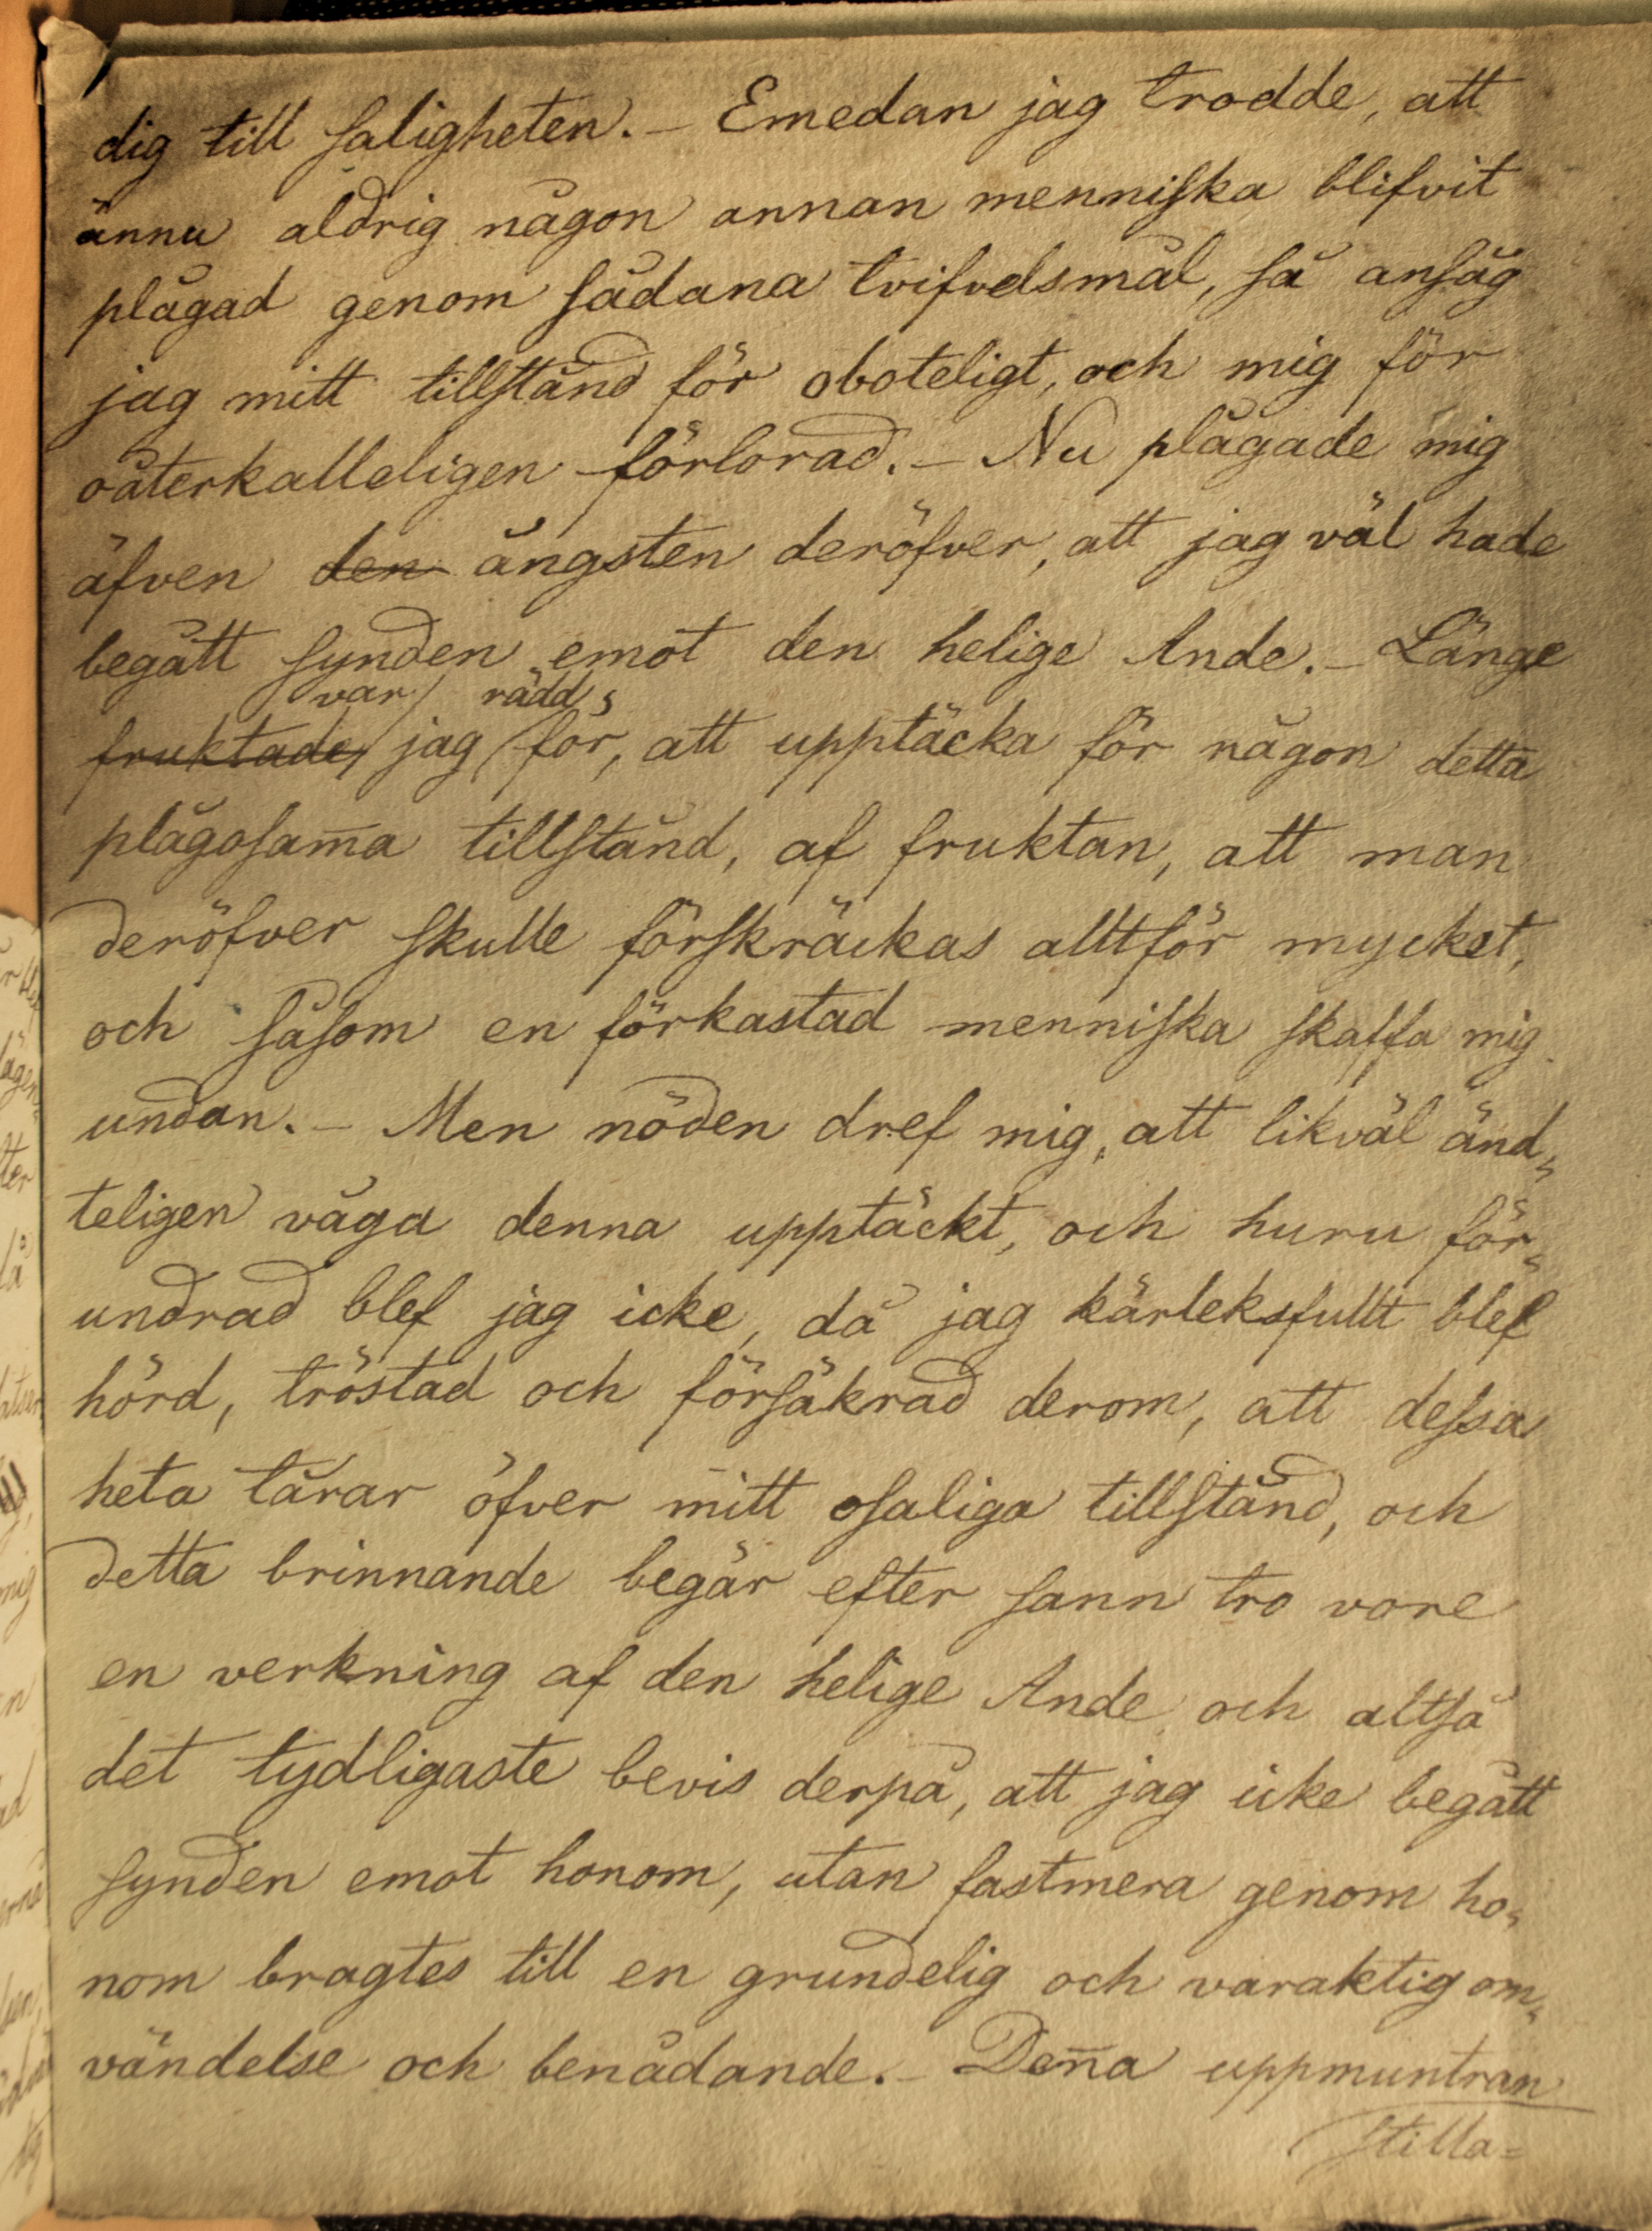 dig till saligheten. – Emedan jag trodde, att
ännu aldrig någon annan menniska blifvit
plågad genom sådana tvifvelsmål, så ansåg
jag mitt tillstånd för oboteligt, och mig för
oåterkalleligen förlorad. – Nu plågade mig
äfven den ångsten deröfver, att jag väl hade
begått synden emot den helige Ande. – Länge
var rädd
fruktade jag för, att upptäcka för någon detta
plågosam̄a tillstånd, af fruktan, att man
deröfver skulle förskräckas alltför mycket,
och såsom en förkastad menniska skaffa mig
undan. – Men nöden dref mig, att likväl änd„
teligen våga denna upptäckt, och huru för„
undrad blef jag icke, då jag kärleksfullt blef
hörd, tröstad och försäkrad derom, att dessa
heta tårar öfver mitt osaliga tillstånd, och
detta brinnande begär efter sann tro vore
en verkning af den helige Ande och altså
det tydligaste bevis derpå, att jag icke begått
synden emot honom, utan fastmera genom ho„
nom bragtes till en grundelig och varaktig om„
vändelse och benådande. – Den̄a uppmuntran
stilla=